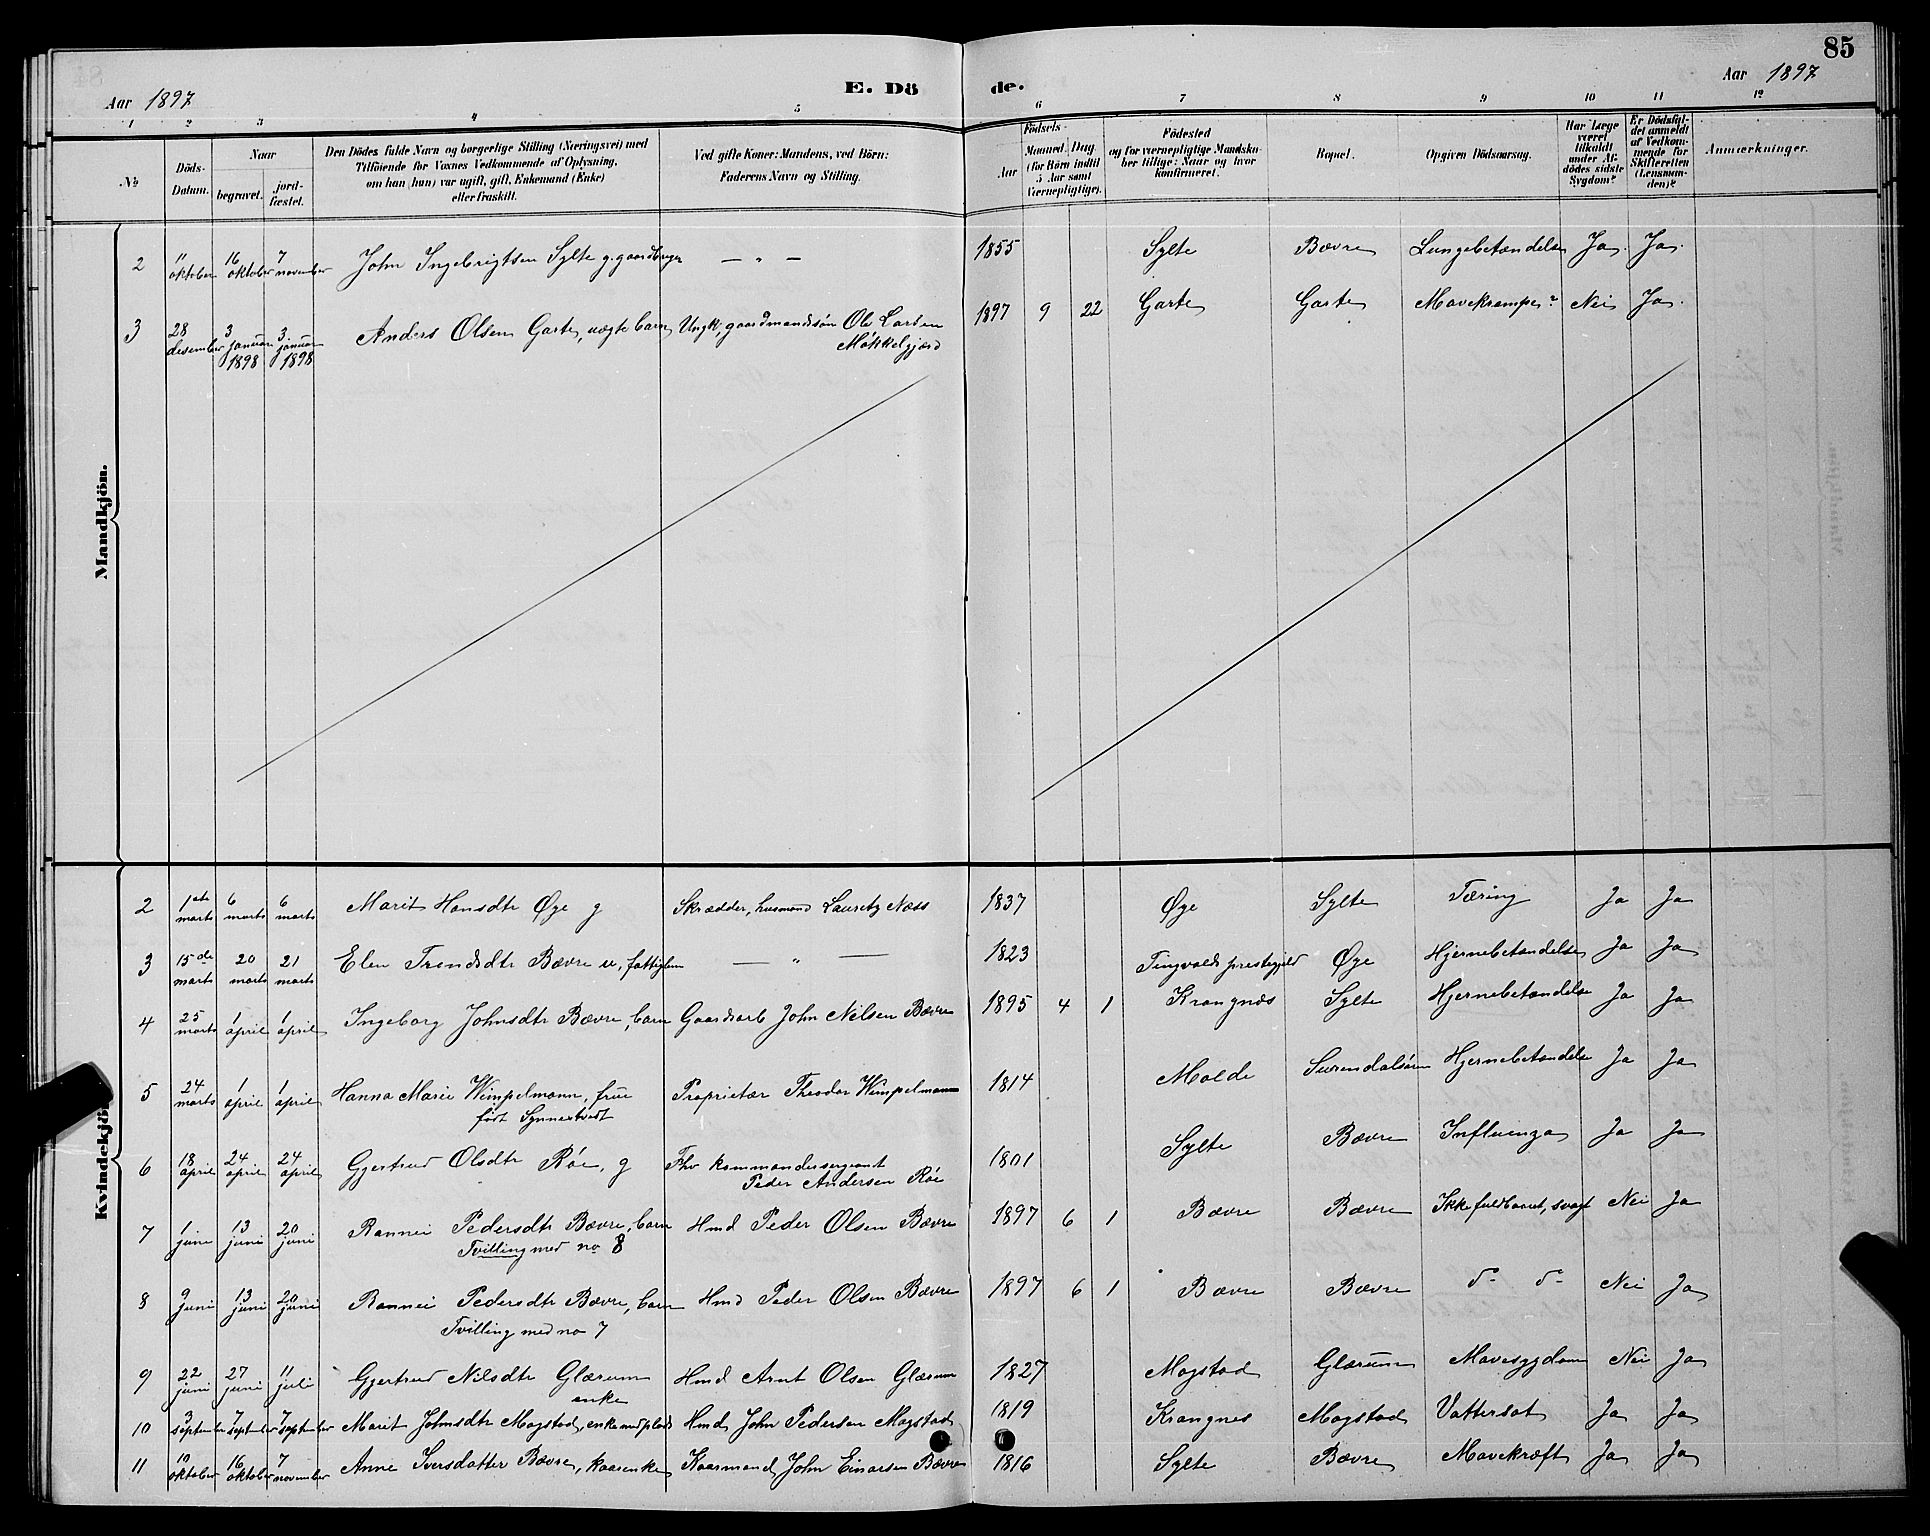 85
Aar 1897
E. Dö
de.
Aar 1897
1 2 3 4 5 6 7 8 9 10 11 12
№
Döds-Datum.
Naar
begravet.
jord-fæstet.
Den Dödes fulde Navn og borgerlige Stilling (Næringsvei) med
Tilföiende for Voxnes Vedkommende af Oplysning,
om han (hun) var ugift, gift, Enkemand (Enke)
eller fraskilt.
Ved gifte Koner: Mandens, ved Börn:
Faderens Navn og Stilling.
Födsels-
Aar
Maaned.
Dag
(for Börn indtil
5 Aar samt
Værnepligtige).
Födested
og for værnepligtige Mandska-
ber tillige: Naar og hvor
konfirmeret.
Bopæl.
Opgiven Dödsaarsag.
Har Læge
været
tilkaldt
under Af-
dödes sidste
Sygdom?
Er Dödsfal-
det anmeldt
af Vedkom-
mende for
Skifteretten
(Lensman-
den)?
Anmærkninger.
Mandkjön.
2 11 oktober 16 oktober 7 november John Ingebrigtsen Sylte g. gaardbruger — " — 1855 Sylte Bævre Lungebetændelse Ja. Ja.
3 28 desember 3 januar 1898 3 januar 1898 Anders Olsen Garte, uægte barn Ungk, gaardmandssön Ole Larsen 1897 9 22 Garte Garte Mavekrampe? Nei Ja.
Møkkelgjærd
Kvindekjön
2 1ste marts 6 marts 6 marts Marit Hansdtr Øye g Skrædder, husmand Lauritz Næss 1837 Øye Sylte Tæring Ja Ja
3 15de marts 20 marts 21 marts Elen Trondsdtr Bævre u, fattiglem — " — 1823 Tingvolds prestegjeld Øye Hjernebetændelse Ja Ja
4 25 marts 1 april 1 april Ingeborg Johnsdtr Bævre, barn Gaardarb John Nilsen Bævre 1895 4 1 Krangnæs Sylte Hjernebetændelse Ja Ja
5 24 marts 1 april 1 april Hanna Marie Wimpelmann, frue Proprietær Theodor Wimpelmann 1814 Molde Surendalsören Hjernebetændelse Ja Ja
født Synnestvedt
6 18 april 24 april 24 april Gjertrud Olsdtr Røe, g Fhv kommandersergeant 1801 Sylte Bævre Influenza Ja Ja
Peder Andersen Röe
7 1 juni 13 juni 20 juni Rannei Pedersdtr Bævre, barn Hmd Peder Olsen Bævre 1897 6 1 Bævre Bævre Ikke fuldbaaret, svagt Nei Ja
Tvilling med no 8
8 9 juni 13 juni 20 juni Rannei Pedersdtr Bævre, barn Hmd Peder Olsen Bævre 1897 6 1 Bævre Bævre d- d- Nei Ja
Tvilling med no 7
9 22 juni 27 juni 11 juli Gjertrud Nilsdtr Glærum Hmd Arnt Olsen Glærum 1827 Mogstad Glærum Mavesygdom Nei Ja
enke
10 3 september 7 september 7 september Marit Johnsdtr Mogstad, enke med plads Hmd John Pedersen Mogstad 1819 Krangnes Mogstad Vattersot Ja Ja
11 10 oktober 16 oktober 7 november Anne Iversdatter Bævre, kaarenke Kaarmand John Einarsen Bævre 1816 Sylte Bævre Mavekræft Ja Ja